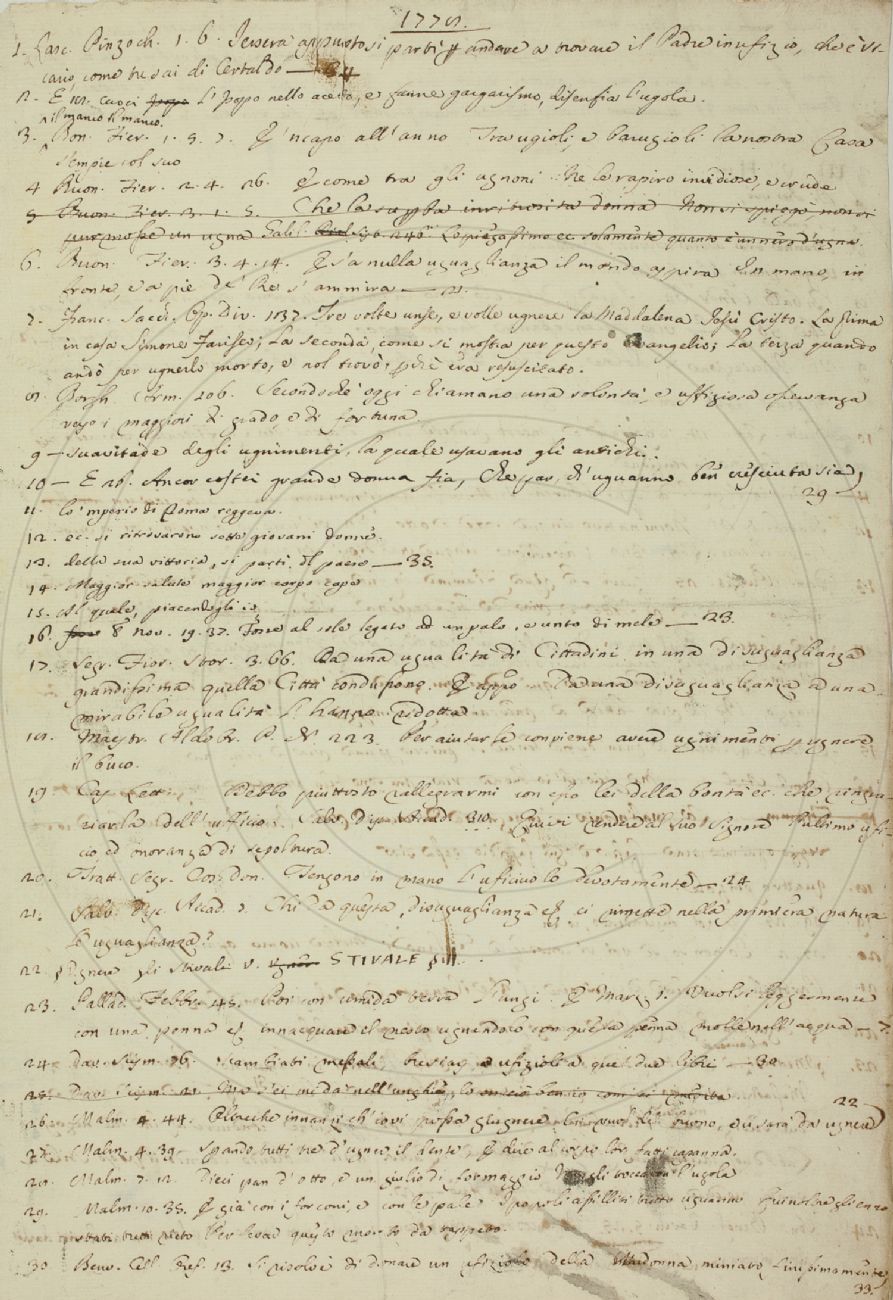 1. Lasc. Pinzoch. 1. 6. Iersera appunto si partì p andare a trovare il Padre in ufizio, che è vi-
cario, come tu sai di Certaldo — 34
2. E cuoci l'Ippo nello aceto, e fanne gargarismo, disenfia l'ugola.
il manco il manco.
3. Bon. Fier. 1. 5. 7. E 'ncapo all'anno Tra ugioli, e barugioli la nostra Casa
sempre col suo
4 Buon. Fier. 2. 4. 26. E come tra gli ugnoni che le rapiro invidiose, e crude
5 Buon. Fier. 3. 1. 5. Che la donna Non si piegò non si
un ugna Galil. 240 Lo piegassimo ec. solamente quanto è un nero d'ugna.
6. Buon. Fier. 3. 4. 14. E s'a nulla uguaglianza il mondo aspira In mano, in
fronte, e a piè de' Re s'ammira — 21.
7. Franc. Sacch. Op. Div. 137. Tre volte unse, e volle ugnere la Maddalena Iesù Cristo. La prima
in casa Simone Fariseo; La seconda, come si mostra per questo Evangelio; La terza quando
andò per ugnerlo morto, e nol trovò; pchè era resuscitato.
8. Borgh. Arm. 206. Secondochè oggi chiamano una volontà, e uffiziosa osservanza
verso i maggiori di grado, e di fortuna.
9 — suavitade degli ugnimenti, la quale usavano gli antichi.
10 — E 28. Ancor costei grande donna fia, Che par, ch'uguanno ben cresciuta sia,
29
11. lo 'mperio di Roma reggeva.
12. ec. si ritrovarono sette giovani donne.
13. della sua vittoria, si partì il paese — 35.
14. Maggior salute maggior corpo cape
15. Al quale, piacendogli io
16. 8 Nov. 19. 37. Fosse al sole legato ad un palo, e unto di mele — 23.
17. Segr. Fior. Stor. 3. 66. Da una ugualità di Cittadini in una disuguaglianza
grandissima quella Città condussono. E appo Da una disuguaglianza ad una
mirabile ugualità l'hanno ridotta
18. Maestr. Aldobr. P. N. 223. Per aiutarle conviene avere ugnimenti p ugnere
il buco.
19. Cas. Lett. Debbo piuttosto rallegrarmi con esso lei della bontà ec. che ringra-
ziarla dell'ufficio. Salv. Disc. Accad. 310. Quivi rendere al suo Signore l'ultimo ufi-
cio, ed onoranza di sepoltura.
20. Tratt. Segr. Cos. Don. Tengono in mano l'uficiuolo devotamente — 24
21. Salv. Disc. Accad. 7. Chi da questa disuguaglianza ci rimette nella primiera natura
le uguaglianza?
22. Ugnere gli stivali v. STIVALE
23. Pallad. Febbr. 45. Poi con umida terra l'ungi. E Marz. 1. Vuolsi leggermente
con una penna innacquare el nesto ugnendolo con questa penna molle nell'acqua — 7
24. Dav. Scism. 76. Scambiati messali, breviarj e ufizioli a que' due libri — 30
25. Dav. Scism. nell'unghia, lo
22
26. Malm. 4. 44. Perchè innanzi ch'ivi possa giugnere buono, e ci sarà da ugnere
27. Malm. 4. 39. Spando tutti tre d'ugner il dente, E dire al corpo lor fatti capanna.
28. Malm. 7. 12. Dieci pan d'otto, e un giulio di formaggio Non gli toccaron l'ugola
29. Malm. 10. 35. E già con i forconi, e con le pale I popoli assillati tutto uguanno
stati tutti dreto Per levar questo morto da tappeto.
30. Benv. Cell. Oref. 13. Si risolvè di donare un ufiziolo della Madonna, miniato finissimamente
33.